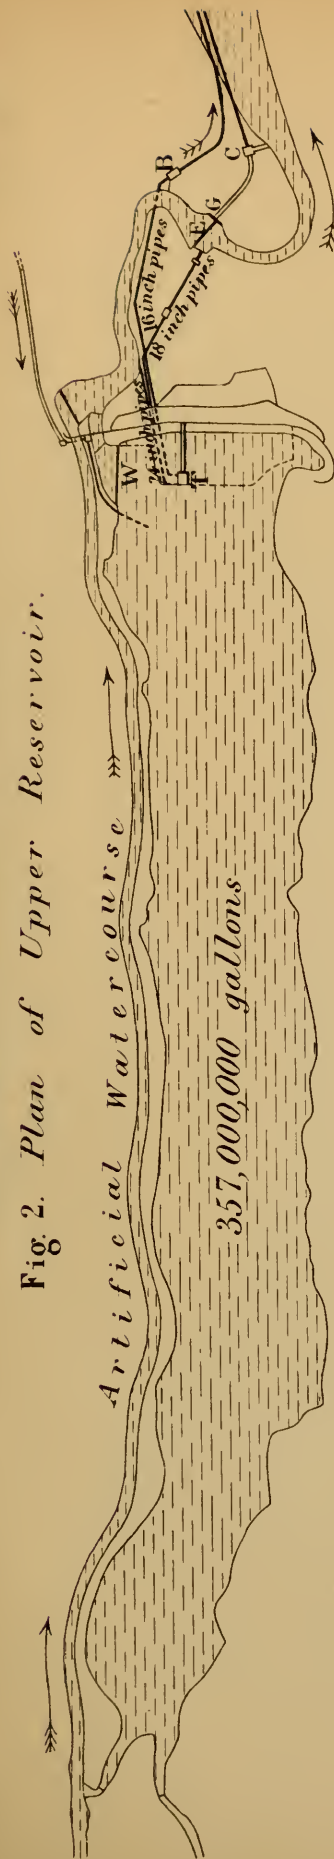 Fig. 2. Plan of Upper Reservoir.
Artificial Watercourse
357,000,000 gallons
W
24 inch pipes
T
16 inch pipes
18 inch pipes
B
E
G
C